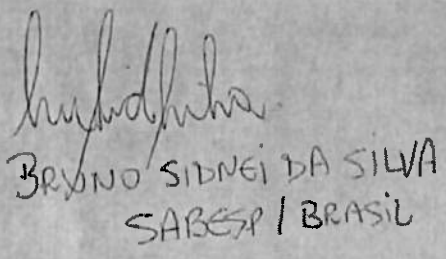 BRUNO SIDNEI DA SILVA
SABESP / BRASIL